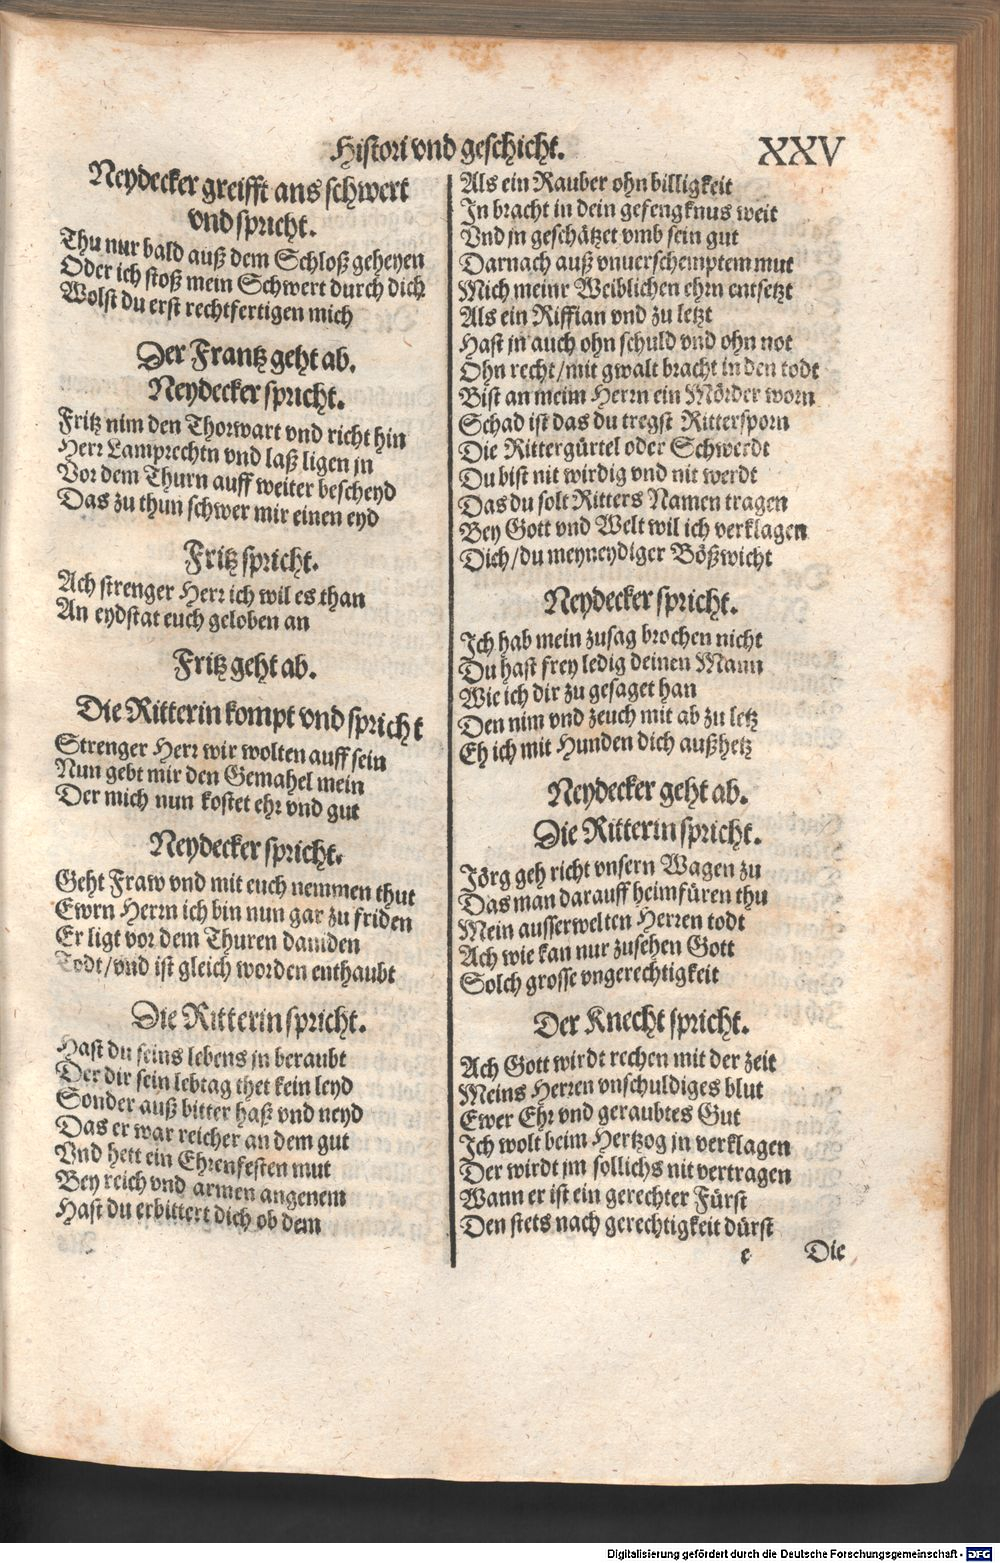 Histori vnd geschicht. XXV
Neydecker greifft ans schwert
vnd spricht.
Thu nur bald auß dem Schloß geheyen
Oder ich stoß mein Schwert durch dich
Wolst du erst rechtfertigen mich
Der Frantz geht ab.
Neydecker spricht.
Fritz nim den Thorwart vnd richt hin
Herr Lamprechtn vnd laß ligen jn
Vor dem Thurn auff weiter bescheyd
Das zu thun schwer mir einen eyd
Fritz spricht.
Ach strenger Herr ich wil es than
An eydstat euch geloben an
Fritz geht ab.
Die Ritterin kompt vnd spricht
Strenger Herr wir wolten auff sein
Nun gebt mir den Gemahel mein
Der mich nun kostet ehr vnd gut
Neydecker spricht.
Geht Fraw vnd mit euch nemmen thut
Ewrn Herrn ich bin nun gar zu friden
Er ligt vor dem Thuren daniden
Todt/vnd ist gleich worden enthaubt
Die Ritterin spricht.
Hast du seins lebens jn beraubt
Der dir sein lebtag thet kein leyd
Sonder auß bitter haß vnd neyd
Das er war reicher an dem gut
Vnd hett ein Ehrenfesten mut
Bey reich vnd armen angenem
Hast du erbittert dich ob dem
Als ein Rauber ohn billigkeit
In bracht in dein gefengknus weit
Vnd jn geschätzet vmb sein gut
Darnach auß vnuerschemptem mut
Mich meinr Weiblichen ehrn entsetzt
Als ein Riffian vnd zu letzt
Hast jn auch ohn schuld vnd ohn not
Ohn recht/mit gwalt bracht in den todt
Bist an meim Herrn ein Mörder worn
Schad ist das du tregst Rittersporn
Die Rittergürtel oder Schwerdt
Du bist nit wirdig vnd nit werdt
Das du solt Ritters Namen tragen
Bey Gott vnd Welt wil ich verklagen
Dich/du meyneydiger Bößwicht
Neydecker spricht.
Ich hab mein zusag brochen nicht
Du hast frey ledig deinen Mann
Wie ich dir zu gesaget han
Den nim vnd zeuch mit ab zu letz
Eh ich mit Hunden dich außhetz
Neydecker geht ab.
Die Ritterin spricht.
Jörg geh richt vnsern Wagen zu
Das man darauff heimfüren thu
Mein ausserwelten Herren todt
Ach wie kan nur zusehen Gott
Solch grosse vngerechtigkeit
Der Knecht spricht.
Ach Gott wirdt rechen mit der zeit
Meins Herren vnschuldiges blut
Ewer Ehr vnd geraubtes Gut
Ich wolt beim Hertzog jn verklagen
Der wirdt im sollichs nit vertragen
Wann er ist ein gerechter Fürst
Den stets nach gerechtigkeit dürst
e Die
Digitalisierung gefördert durch die Deutsche Forschungsgemeinschaft - DFG